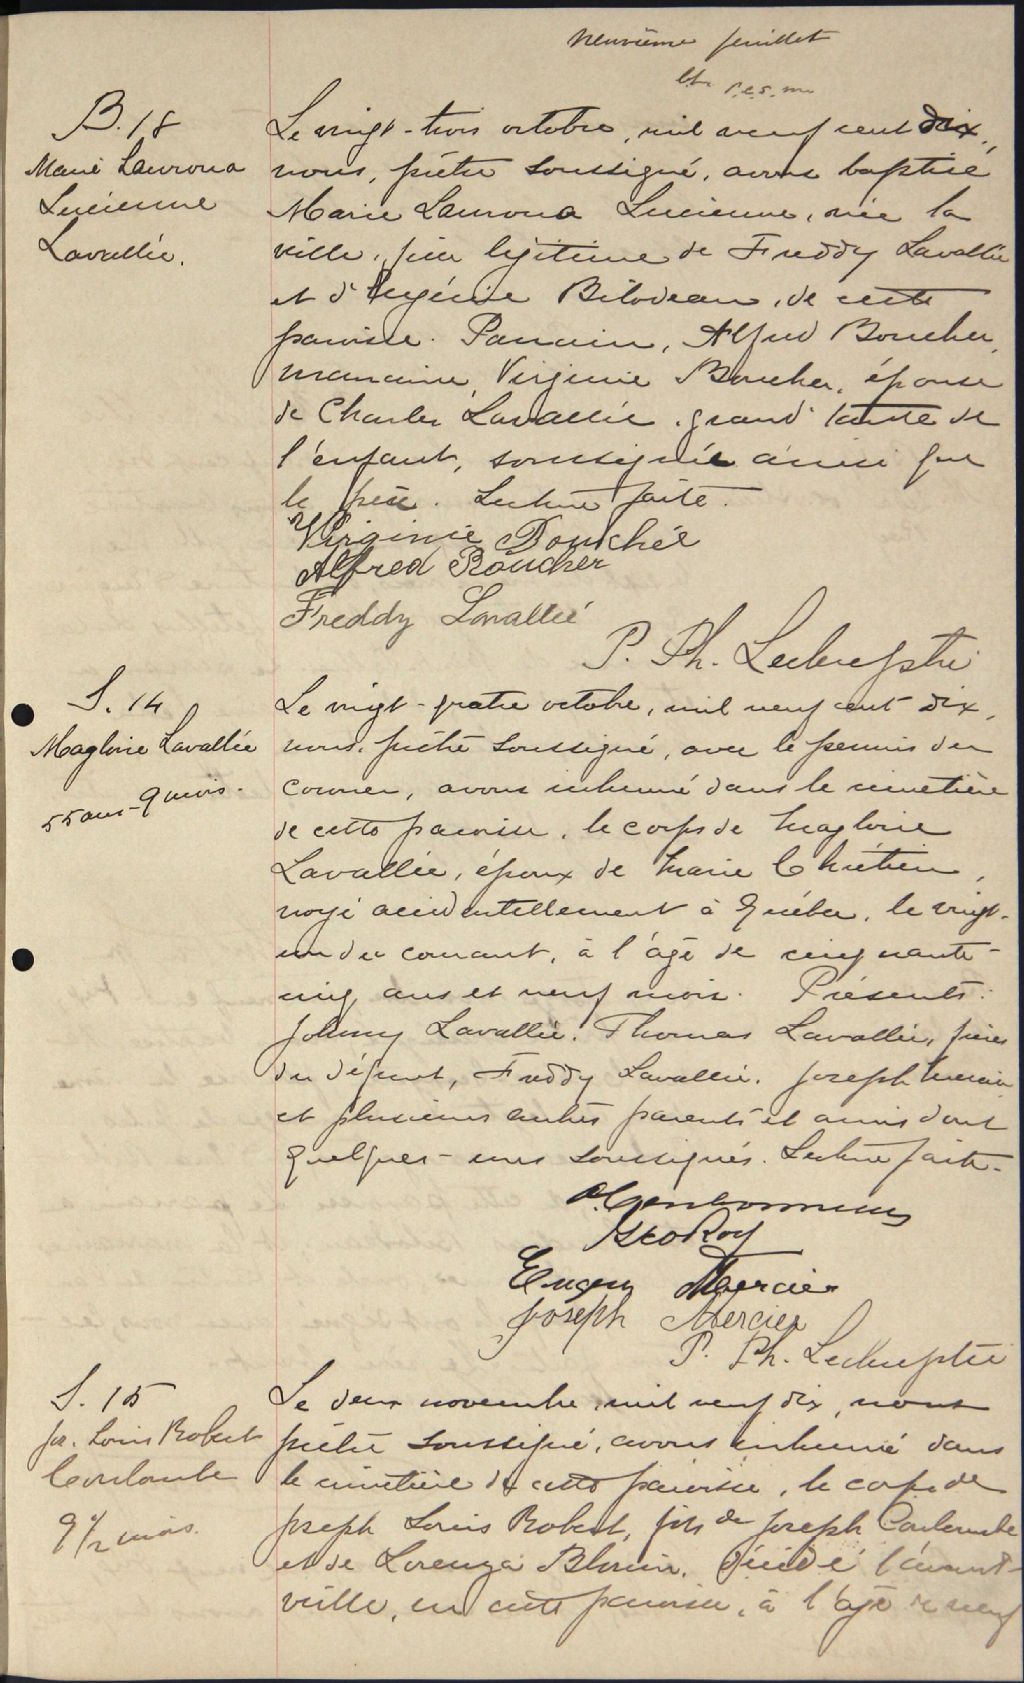 neuvième feuillet
B. 18
Marie Laurona
Lucienne
Lavallée.
Le vingt-trois octobre, mil neuf cent dix,
nous, prêtre soussigné, avons baptisé
Marie Laurona Lucienne, née la
veille, fille légitime de Freddy Lavallée
et d'Eugénie Bilodeau, de cette
paroisse. Parrain, Alfred Boucher,
marraine, Virginie Boucher, épouse
de Charles Lavallée, grand'tante de
l'enfant, soussignée ainsi que
le père. Lecture faite.
Virginie Bouchér
Alfred Boucher
Freddy Lavallée
P. Ph. Leclerc ptre
S. 14
Magloire Lavallée
55 ans - 9 mois.
Le vingt-quatre octobre, mil neuf cent dix,
nous, prêtre soussigné, avec le permis du
coroner, avons inhumé dans le cimetière
de cette paroisse, le corps de Magloire
Lavallée, époux de Marie Chrétien,
noyé accidentellement à Québec, le vingt-
un du courant, à l'âge de cinquante-
cinq ans et neuf mois. Présents:
Johnny Lavallée, Thomas Lavallée, frères
du défunt, Freddy Lavallée, Joseph Mercier
et plusieurs autres parents et amis dont
quelques-uns soussignés. Lecture faite.
Geo Roy
Eugene Mercier
Joseph Mercier
P. Ph. Leclerc ptre
S. 15
Jos. Louis Robert
Coulombe
9 1/2 mois.
Le deux novembre, mil neuf dix, nous
prêtre soussigné, avons inhumé dans
le cimetière de cette paroisse, le corps de
Joseph Louis Robert, fils de Joseph Coulombe
et de Lorenza Blouin, décédé l'avant-
veille, en cette paroisse, à l'âge de neuf